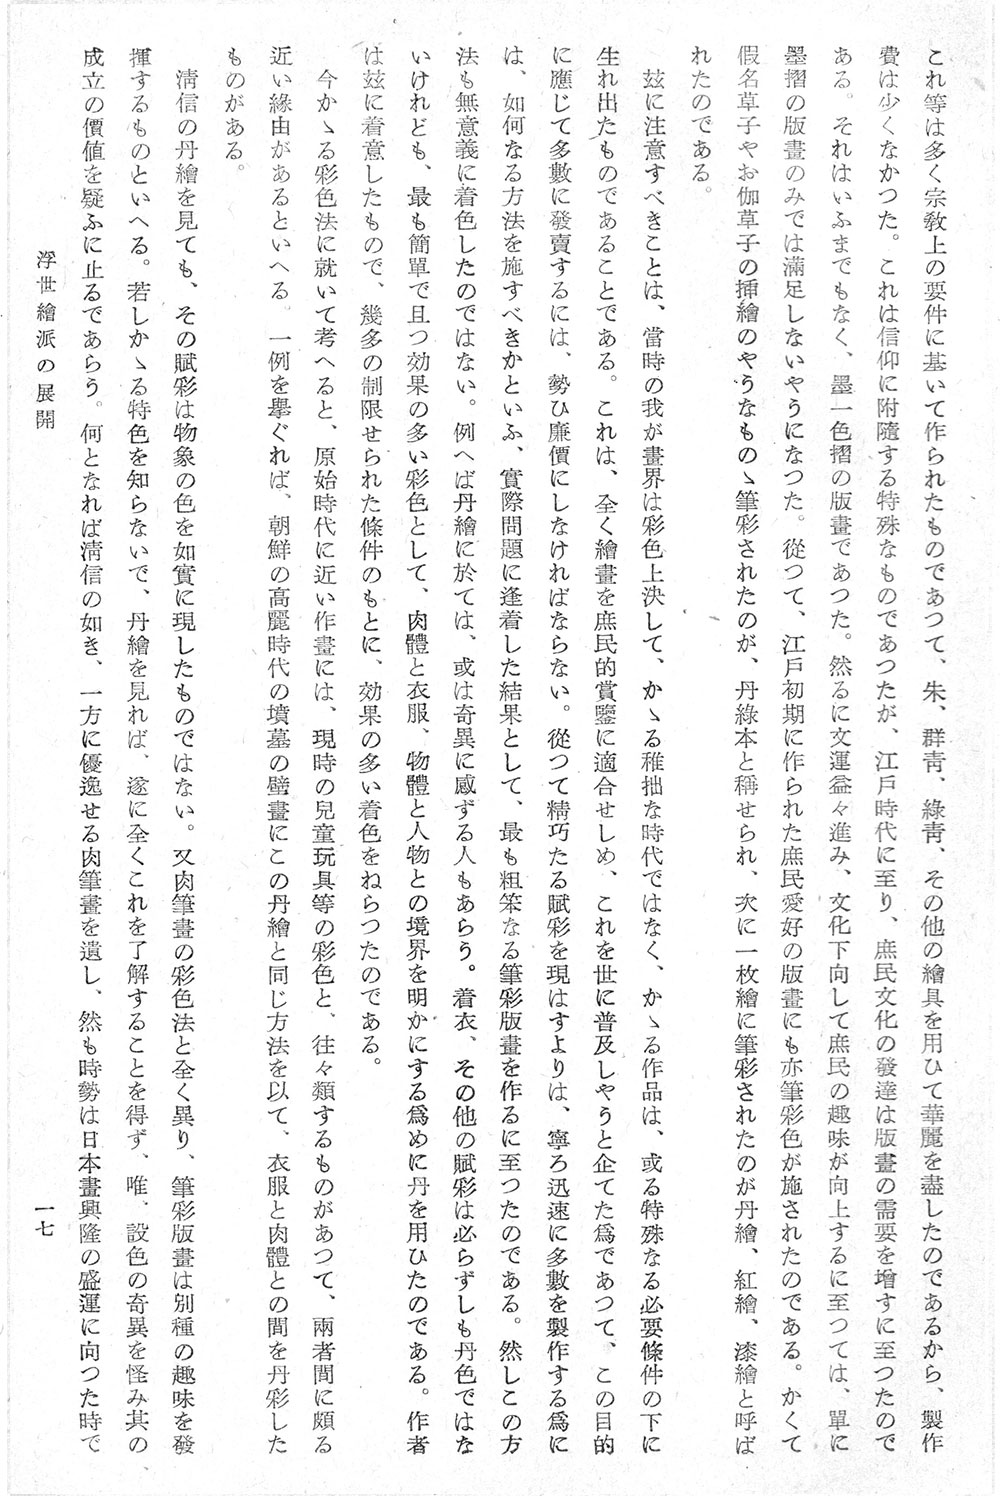 これ等は多く宗教上の要件に基いて作られたものであつて、朱、群靑、綠靑、その他の繪具を用ひて華麗を盡したのであるから、製作
費は少くなかつた。これは信仰に附隨する特殊なものであつたが、江戸時代に至り、庶民文化の發達は版畫の需要を增すに至つたので
ある。それはいふまでもなく、墨一色摺の版畫であつた。然るに文運益々進み、文化下向して庶民の趣味が向上するに至つては、單に
墨摺の版畫のみでは滿足しないやうになつた。從つて、江戸初期に作られた庶民愛好の版畫にも亦筆彩色が施されたのである。かくて
假名草子やお伽草子の揷繪のやうなものゝ筆彩されたのが、丹綠本と稱せられ、次に一枚繪に筆彩されたのが丹繪、紅繪、漆繪と呼ば
れたのである。
玆に注意すべきことは、當時の我が畫界は彩色上決して、かゝる稚拙な時代ではなく、かゝる作品は、或る特殊なる必要條件の下に
生れ出たものであることである。これは、全く繪畫を庶民的賞鑒に適合せしめ、これを世に普及しやうと企てた爲であつて、この目的
に應じて多數に發賣するには、勢ひ廉價にしなければならない。從つて精巧たる賦彩を現はすよりは、寧ろ迅速に多數を製作する爲に
は、如何なる方法を施すべきかといふ、實際問題に逢着した結果として、最も粗笨なる筆彩版畫を作るに至つたのである。然しこの方
法も無意義に着色したのではない。例へば丹繪に於ては、或は奇異に感ずる人もあらう。着衣、その他の賦彩は必らずしも丹色ではな
いけれども、最も簡單で且つ効果の多い彩色として、肉體と衣服、物體と人物との境界を明かにする爲めに丹を用ひたのである。作者
は玆に着意したもので、幾多の制限せられた條件のもとに、効果の多い着色をねらつたのである。
今かゝる彩色法に就いて考へると、原始時代に近い作畫には、現時の兒童玩具等の彩色と、往々類するものがあつて、兩者間に頗る
近い緣由があるといへる。一例を擧ぐれば、朝鮮の高麗時代の墳墓の壁畫にこの丹繪と同じ方法を以て、衣服と肉體との間を丹彩した
ものがある。
淸信の丹繪を見ても、その賦彩は物象の色を如實に現したものではない。又肉筆畫の彩色法と全く異り、筆彩版畫は別種の趣味を發
揮するものといへる。若しかゝる特色を知らないで、丹繪を見れば、遂に全くこれを了解することを得ず、唯、設色の奇異を怪み其の
成立の價値を疑ふに止るであらう。何となれば淸信の如き、一方に優逸せる肉筆畫を遺し、然も時勢は日本畫興隆の盛運に向つた時で
浮世繪派の展開
一七